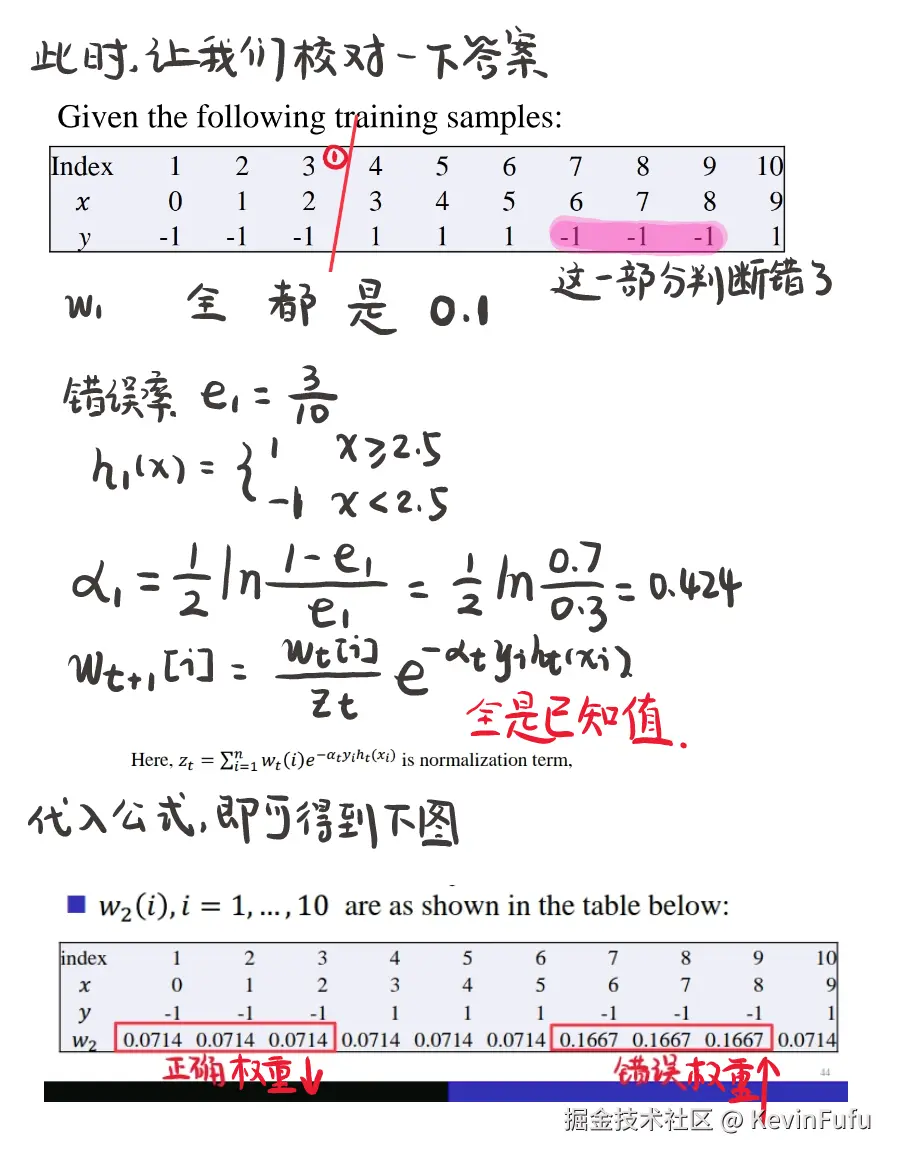 此时,让我们校对一下答案
Given the following training samples:
Index 1 2 3 ① 4 5 6 7 8 9 10
x 0 1 2 3 4 5 6 7 8 9
y -1 -1 -1 1 1 1 -1 -1 -1 1
这一部分判断错了
w₁ 全都是 0.1
错误率 e₁ = 3/10
h₁(x) = { 1 x≥2.5
-1 x<2.5
α₁ = 1/2 ln (1-e₁)/e₁ = 1/2 ln 0.7/0.3 = 0.424
Wt+1[i] = Wt[i]/Zt e^(-αt yi ht(xi))
全是已知值.
Here, z_t = ∑ⁿᵢ₌₁ w_t(i)e^(−α_t y_i h_t(x_i)) is normalization term,
代入公式,即可得到下图
■ w₂(i), i = 1, …, 10 are as shown in the table below:
index 1 2 3 4 5 6 7 8 9 10
x 0 1 2 3 4 5 6 7 8 9
y -1 -1 -1 1 1 1 -1 -1 -1 1
w₂ 0.0714 0.0714 0.0714 0.0714 0.0714 0.0714 0.1667 0.1667 0.1667 0.0714
正确权重↓ 错误权重↑
44
掘金技术社区 @ KevinFufu